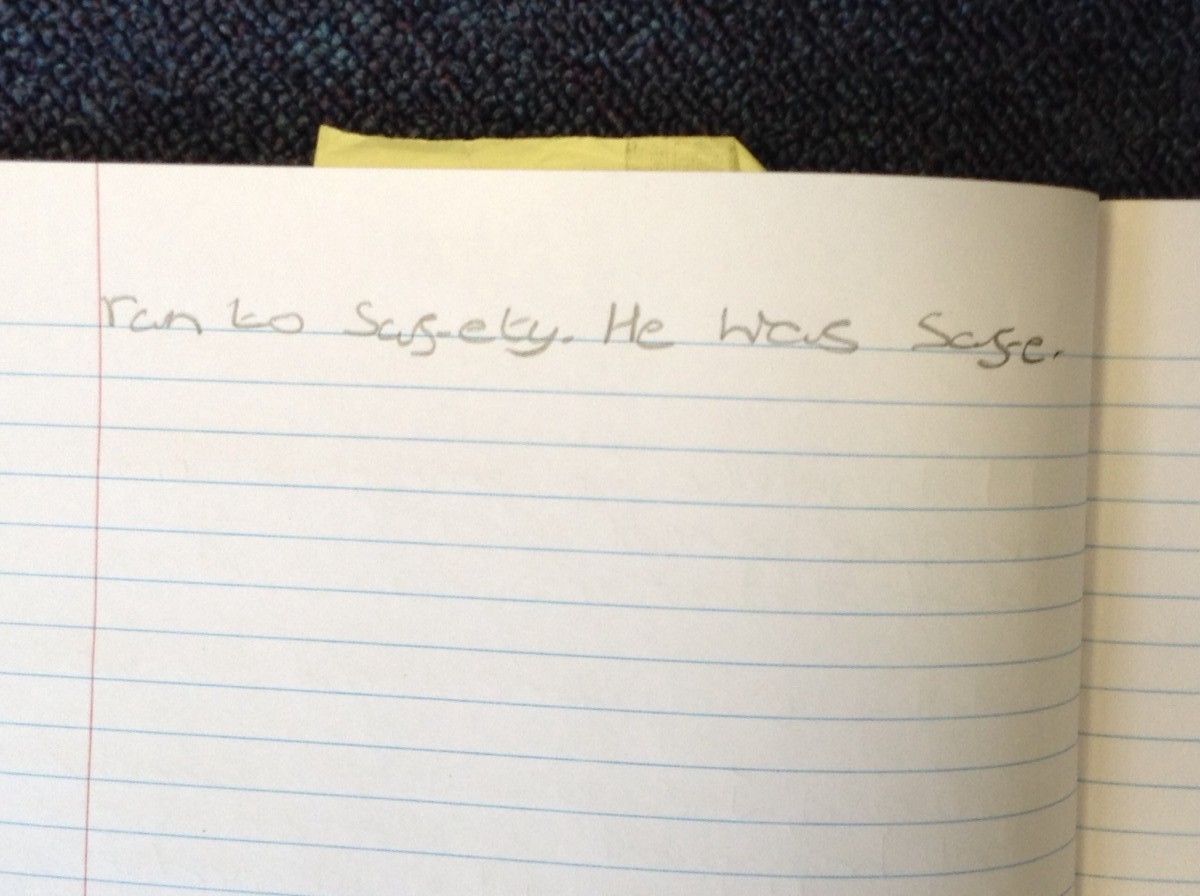 ran to safety. He was safe.